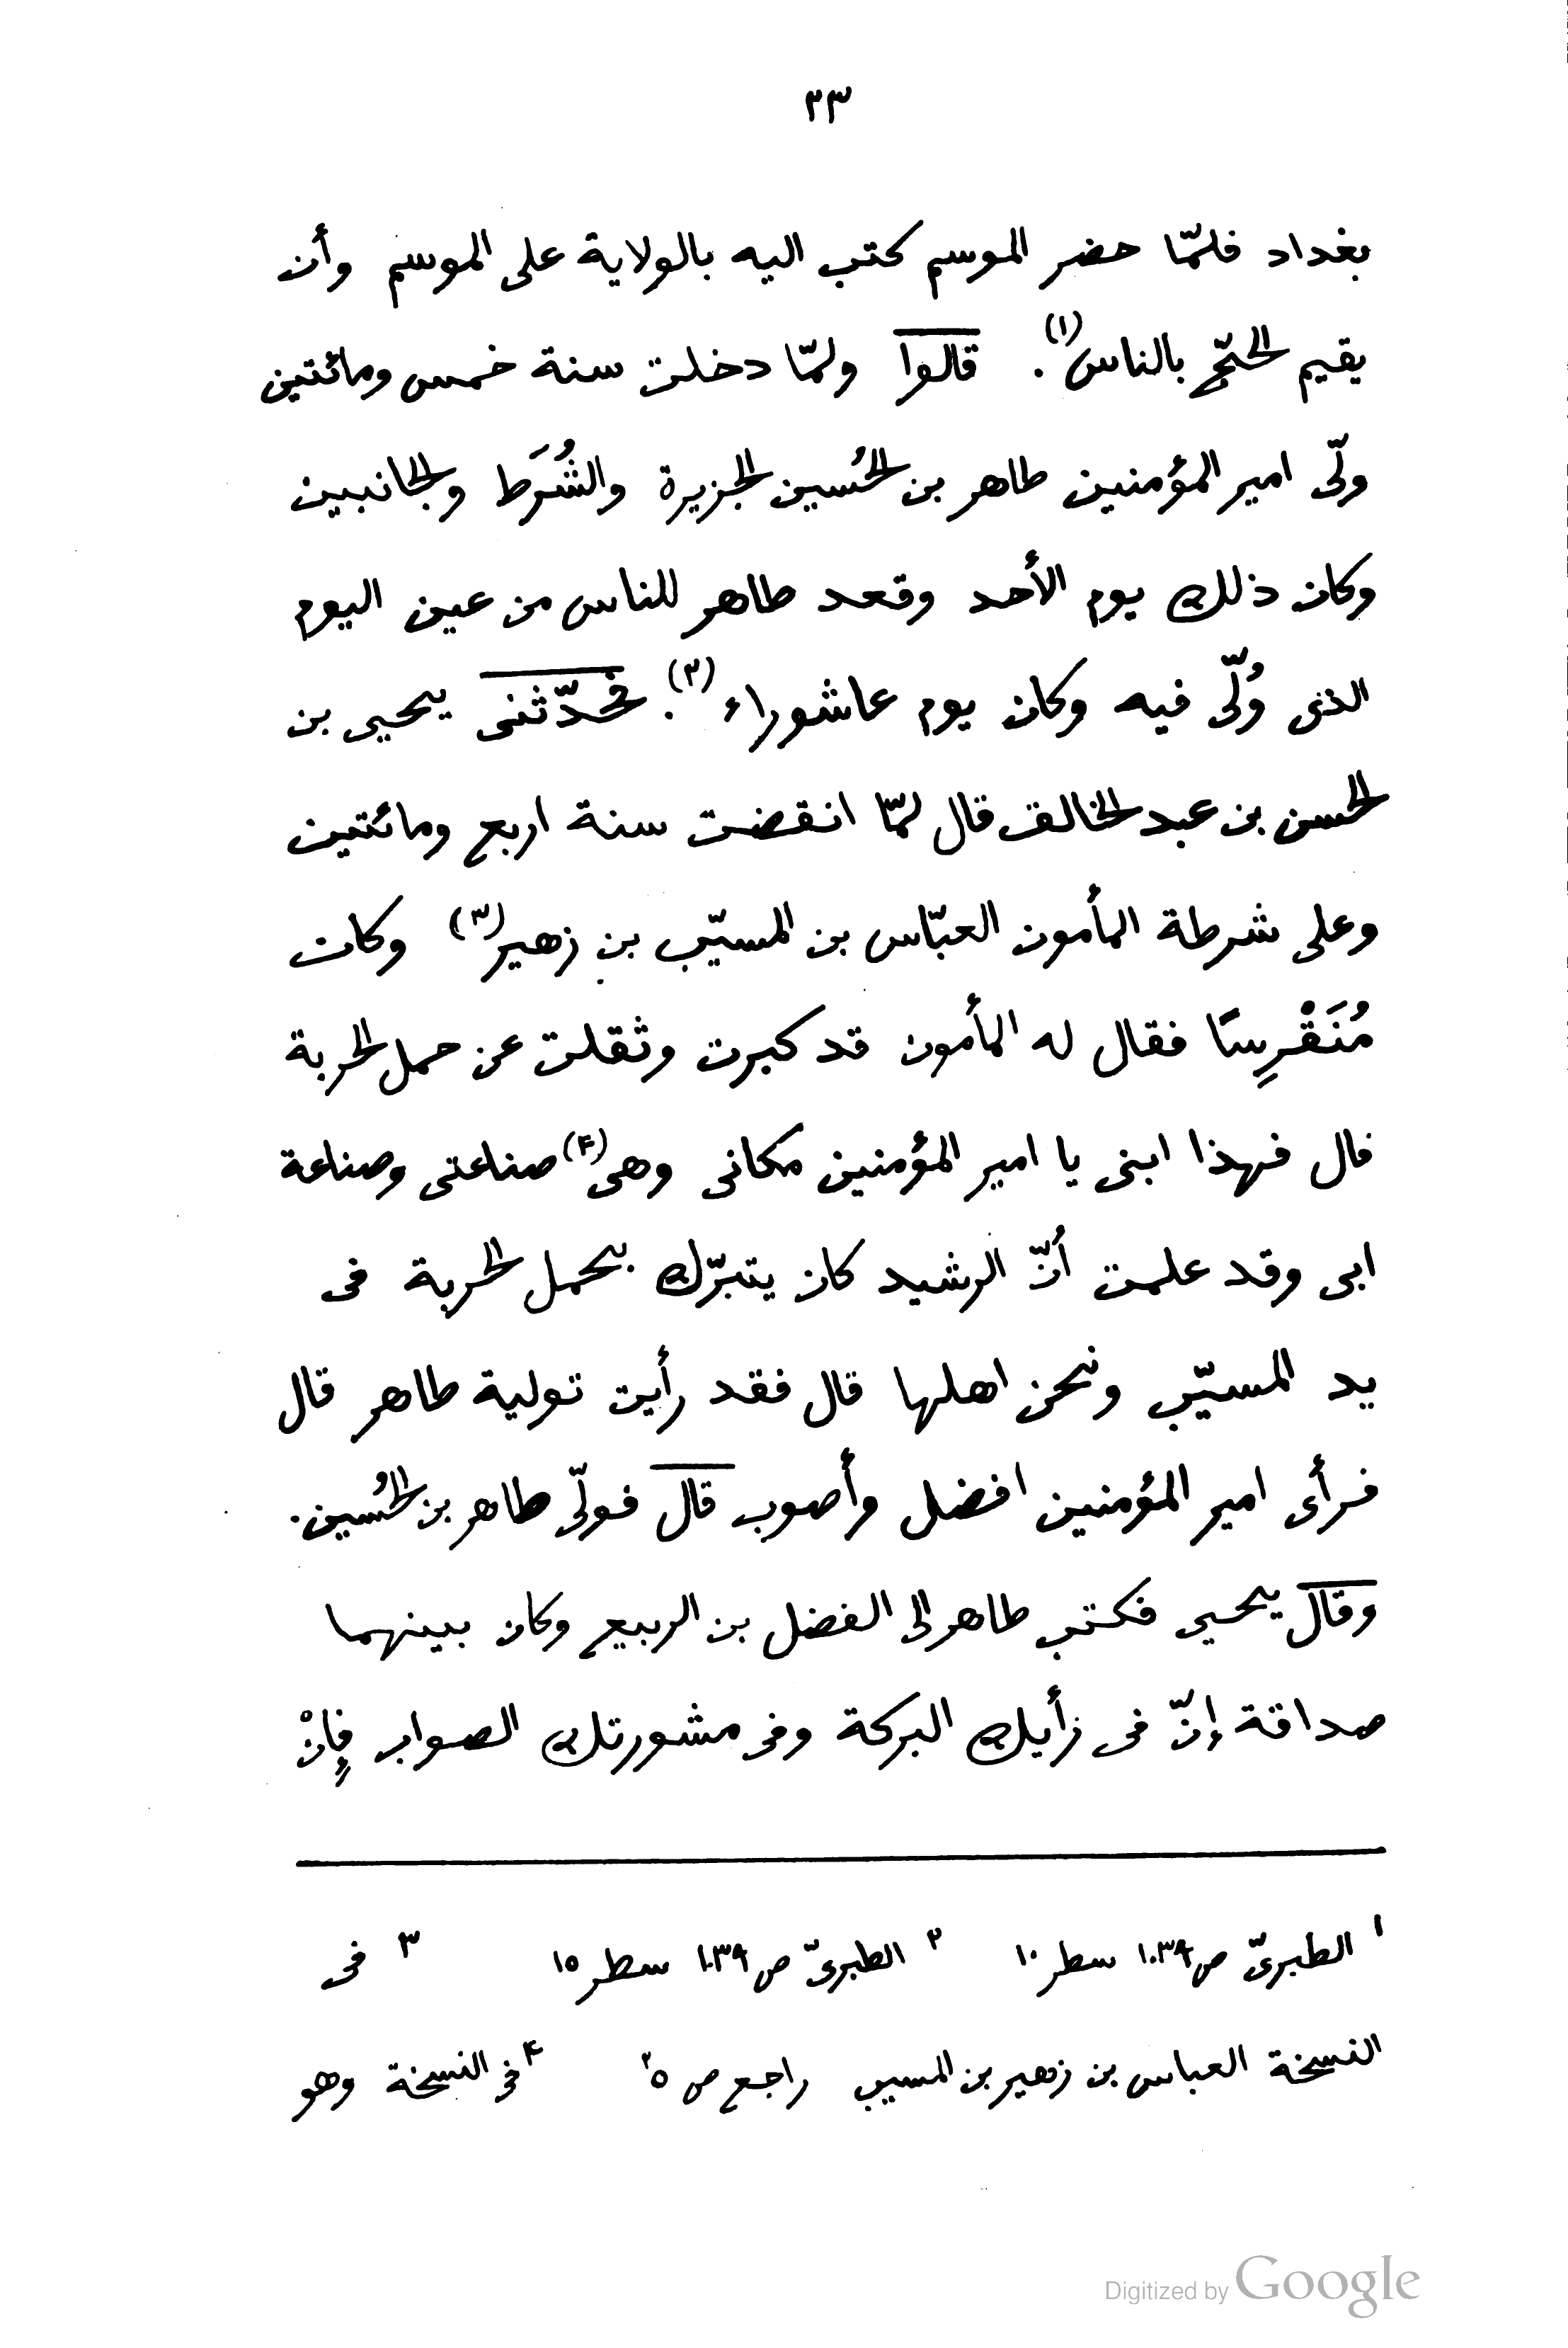 ٢٣
بغداد فلمّا حضر الموسم كتب اليه بالولاية على الموسم وأن
يقيم الحجّ بالناس(١). قالوا ولمّا دخلت سنة خمس ومائتين
ولّى امير المؤمنين طاهر بن الحُسين الجزيرة والشُرَط والجانبين
وكان ذلك يوم الأحد وقعد طاهر للناس من عين اليوم
الذى وُلّى فيه وكان يوم عاشوراء(٢). فحدّثنى يحيى بن
الحسن بن عبد الخالق قال لمّا انقضت سنة اربع ومائتين
وعلى شرطة المأمون العبّاس بن المسيّب بن زهير(٣) وكان
مُنَقْرِسًا فقال له المأمون قد كبرت وثقلت عن حمل الحربة
قال فهذا ابنى يا امير المؤمنين مكانى وهى(٤) صناعتى وصناعة
ابى وقد علمت أنّ الرشيد كان يتبرّك بحمل الحربة فى
يد المسيّب ونحن اهلها قال فقد رأيت تولية طاهر قال
فرأى امير المؤمنين افضل وأصوب قال فولّى طاهر بن الحُسين.
وقال يحيى فكتب طاهر الى الفضل بن الربيع وكان بينهما
صداقة إنّ فى رأيك البركة وفى مشورتك الصواب فإنْ
١ الطبرىّ ص ١٠٣٩ سطر ١٠ ٢ الطبرىّ ص ١٠٣٩ سطر ١٥ ٣ فى
النسخة العباس بن زهير بن المسيب راجع ص ٢٥ ٤ فى النسخة وهو
Digitized by Google